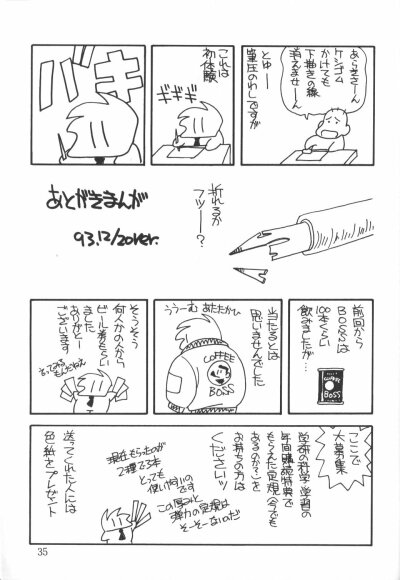 あらきさーん
ケシゴム
かけても
下描きの線
消えませーん
とゆー
筆圧のわしですが
これは
初体験
ギギギ
バキ
折れるか
フツー？
あとがきまんが
93.12/20ver.
前回から
BOSSは
100本くらい
飲みましたが…
COFFEE
BOSS
当たるとは
思いませんでした
ううーむ あたたかひ
COFFEE
BOSS
そうそう
何人かの人から
ビール券もらい
ました
ありがとー
ございます
言ってみる
もんだねえ
ここで
大募集
学研の科学・学習の
年間購読特典で
もらえた定規（今でも
あるのか？）を
お持ちの方は
くださいッ
現在もらったのが
2種で3本
とっても
使い例いのです
この厚みと
弾力の定規は
そーそーないのだ
送ってくれた人には
色紙をプレゼント
35